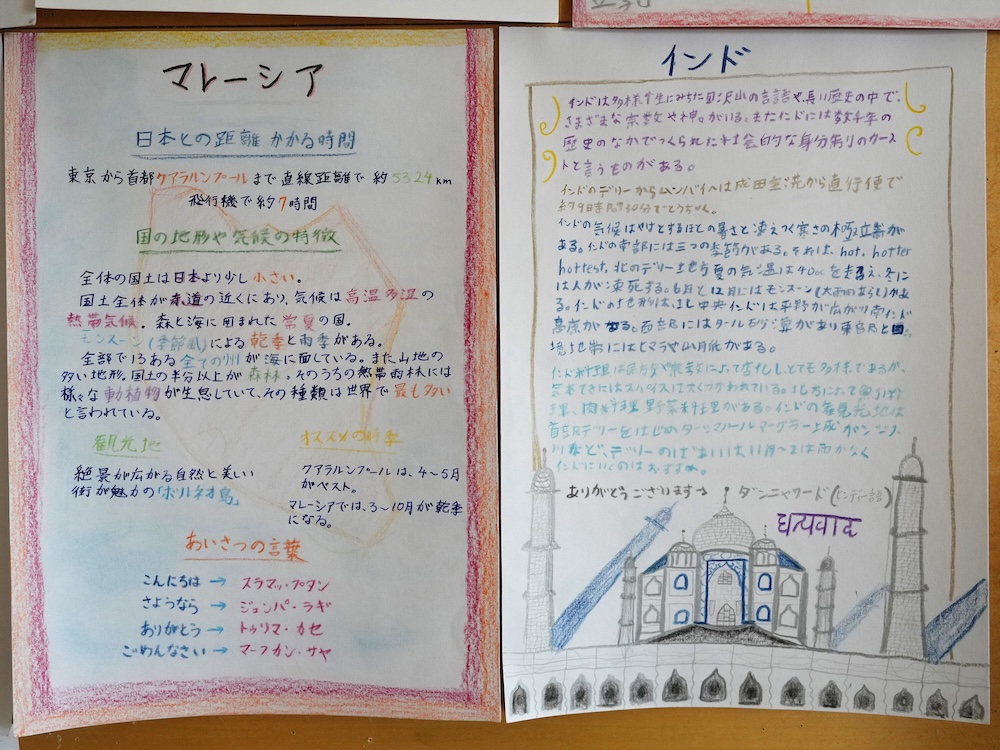 マレーシア
日本との距離 かかる時間
東京から首都クアラルンプールまで直線距離で 約5324km
飛行機で約7時間
国の地形や気候の特徴
全体の国土は日本より少し小さい。
国土全体が赤道の近くにあり、気候は高温多湿の
熱帯気候。森と海に囲まれた常夏の国。
モンスーン(季節風)による乾季と雨季がある。
全部で13ある全ての州が海に面している。また山地の
多い地形。国土の半分以上が森林。そのうちの熱帯雨林には
様々な動植物が生息していて、その種類は世界で最も多い
と言われている。
観光地
絶景が広がる自然と美しい
街が魅力の「ボルネオ島」
オススメの時季
クアラルンプールは、4〜5月
がベスト。
マレーシアでは、3〜10月が乾季
になる。
あいさつの言葉
こんにちは → スラマッ・プタン
さようなら → ジュンパ・ラギ
ありがとう → トゥリマ・カセ
ごめんなさい → マーフカン・サヤ
インド
インドは多様性にみちた国沢山の言語や長い歴史の中で、
さまざまな宗教や神々がいる。またインドには数千年の
歴史のなかでつくられた社会的な身分制りのカース
トと言うものがある。
インドのデリーからムンバイへは成田空港から直行便で
約9時間30分でとうちゃく。
インドの気候はやけどするほどの暑さと凍えつく寒さの極立齢が
ある。インドの南部には三つの季節がある。それは、hot, hotter
hottest, 北のデリー地方夏の気温は40℃を超え、冬に
は人が凍死する。6月と12月にはモンスーン(大雨のあらし)があ
る。インドの地形は、北中央インドは平野が広がり南インド
高原がある。西部にはタール砂漠があり東部と国
境地帯にはヒマラヤ山脈がある。
インド料理は地方や宗教によって変化し、とても多様であるが、
肉料理 野菜料理がある。インドの観光地は
首都デリーをはじめタージマハール
川など、デリーのばあいは11月〜2は雨がなく
インドにいくのはおすすめ。
ありがとうございます→ ダンニャワード(ヒンディー語)
धन्यवाद